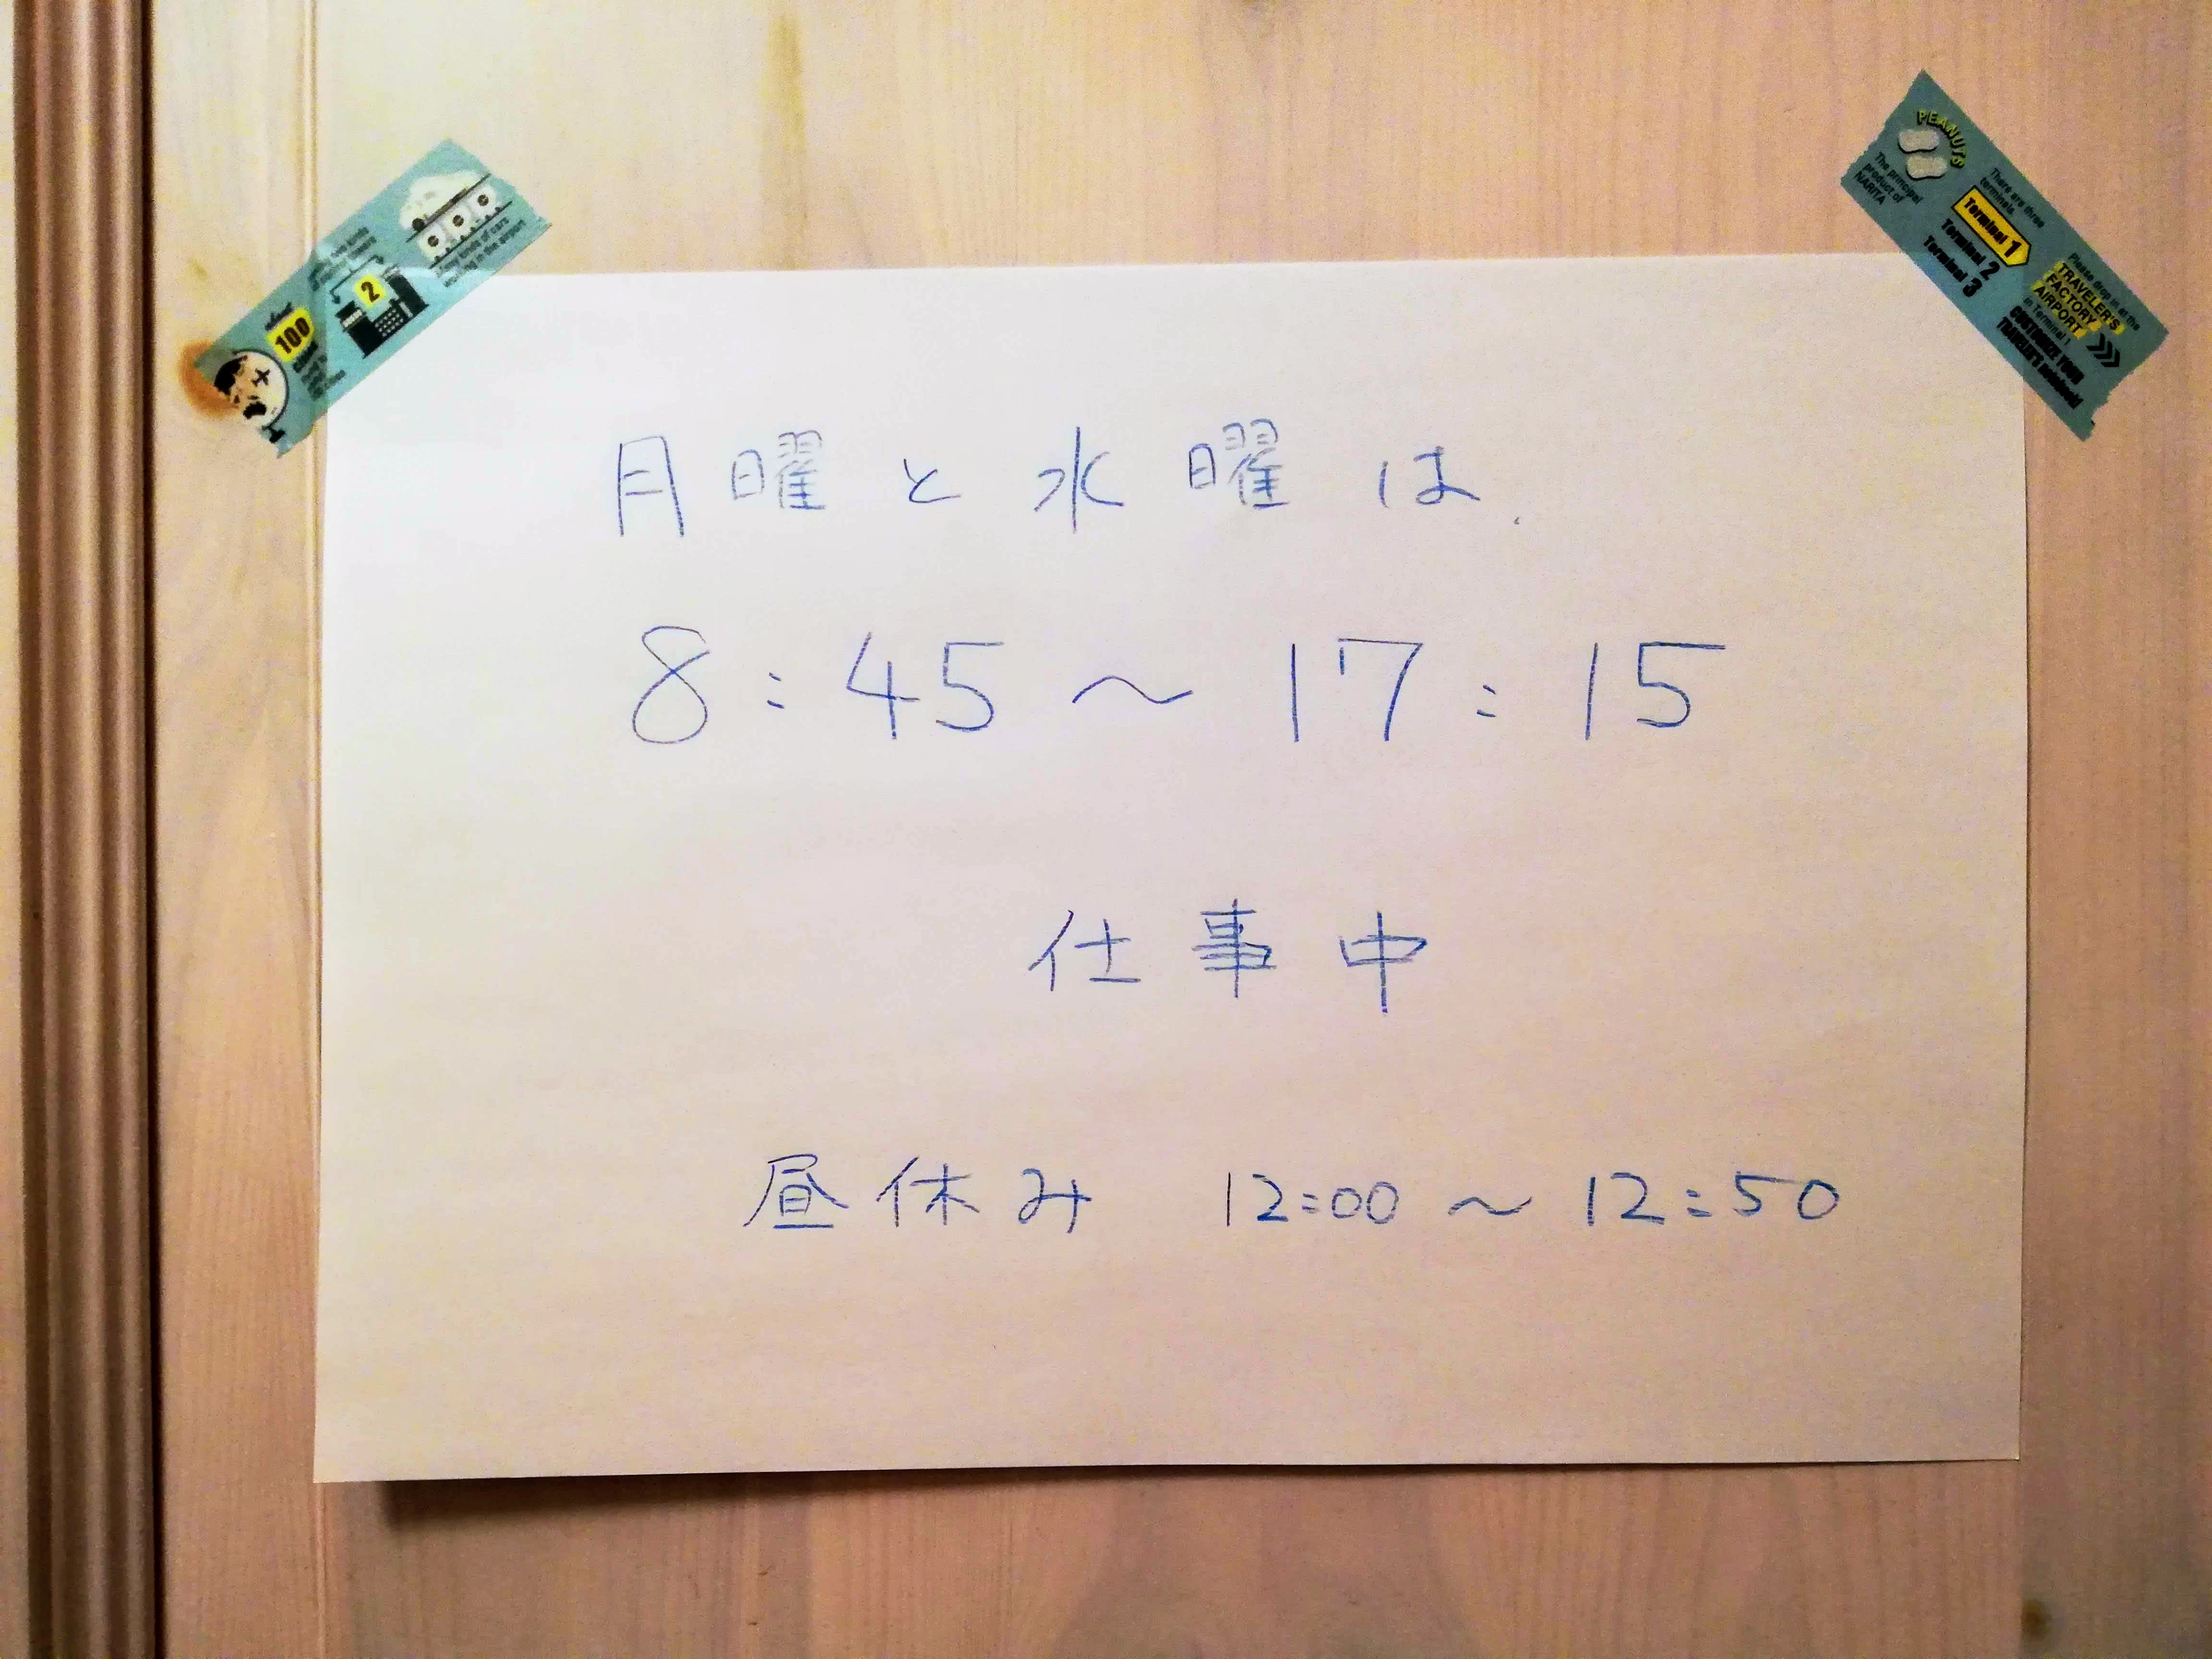 月曜と水曜は、
8:45～17:15
仕事中
昼休み 12:00～12:50
100
2
kinds of cars
working in the airport
PEANUTS
The principal
product of
NARITA
There are three
terminals.
Terminal 1
Terminal 2
Terminal 3
Please drop in at the
TRAVELER'S
FACTORY
AIRPORT
in Terminal 1.
CUSTOMIZE YOUR
TRAVELER'S notebook!